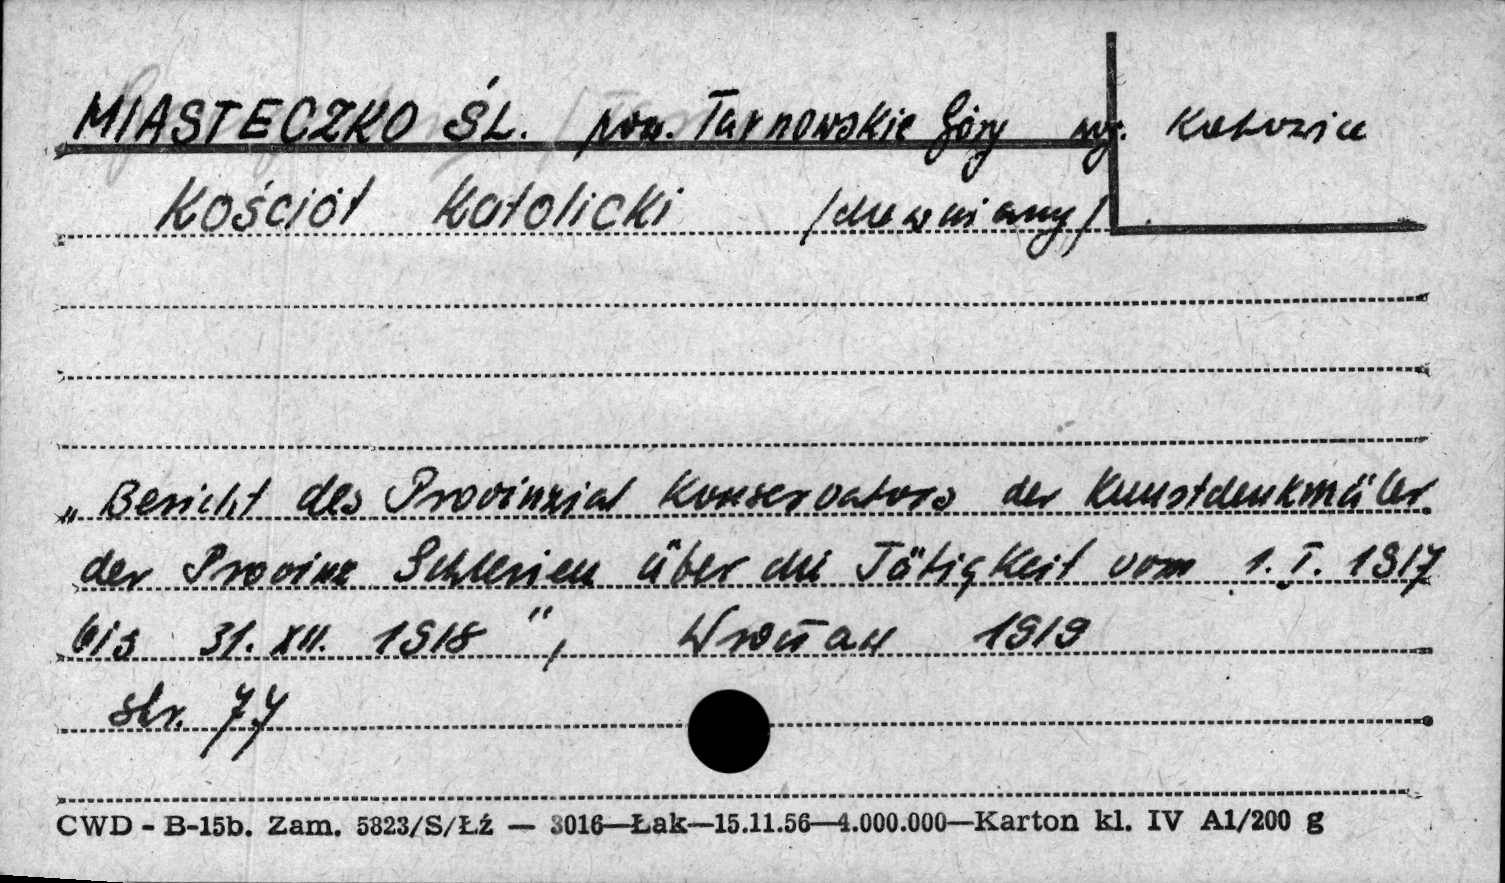 MIASTECZKO ŚL. pow. Tarnowskie Góry woj. Katowice
Kościół Katolicki /drewniany/
„Bericht des Provinzial Konservators der Kunstdenkmäler
der Provinz Schlesien über die Tätigkeit vom 1. I. 1917
bis 31. XII. 1918", Wrocław 1919
str. 77
CWD - B-15b. Zam. 5823/S/Łź — 3016—Łak—15.11.56—4.000.000—Karton kl. IV A1/200 g